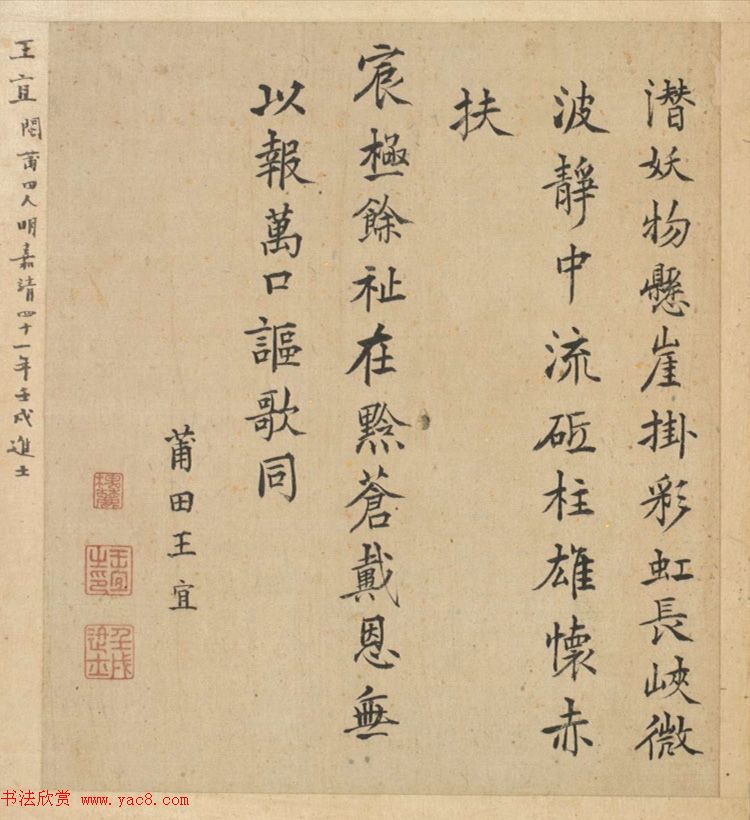 潛妖物懸崖掛彩虹長峽微
波靜中流砥柱雄懷赤
扶
宸極餘祉在黔蒼戴恩無
以報萬口謳歌同
莆田王宜
王宜之印
壬戌進士
王宜 閩莆田人明嘉靖四十一年壬戌進士
书法欣赏 www.yac8.com